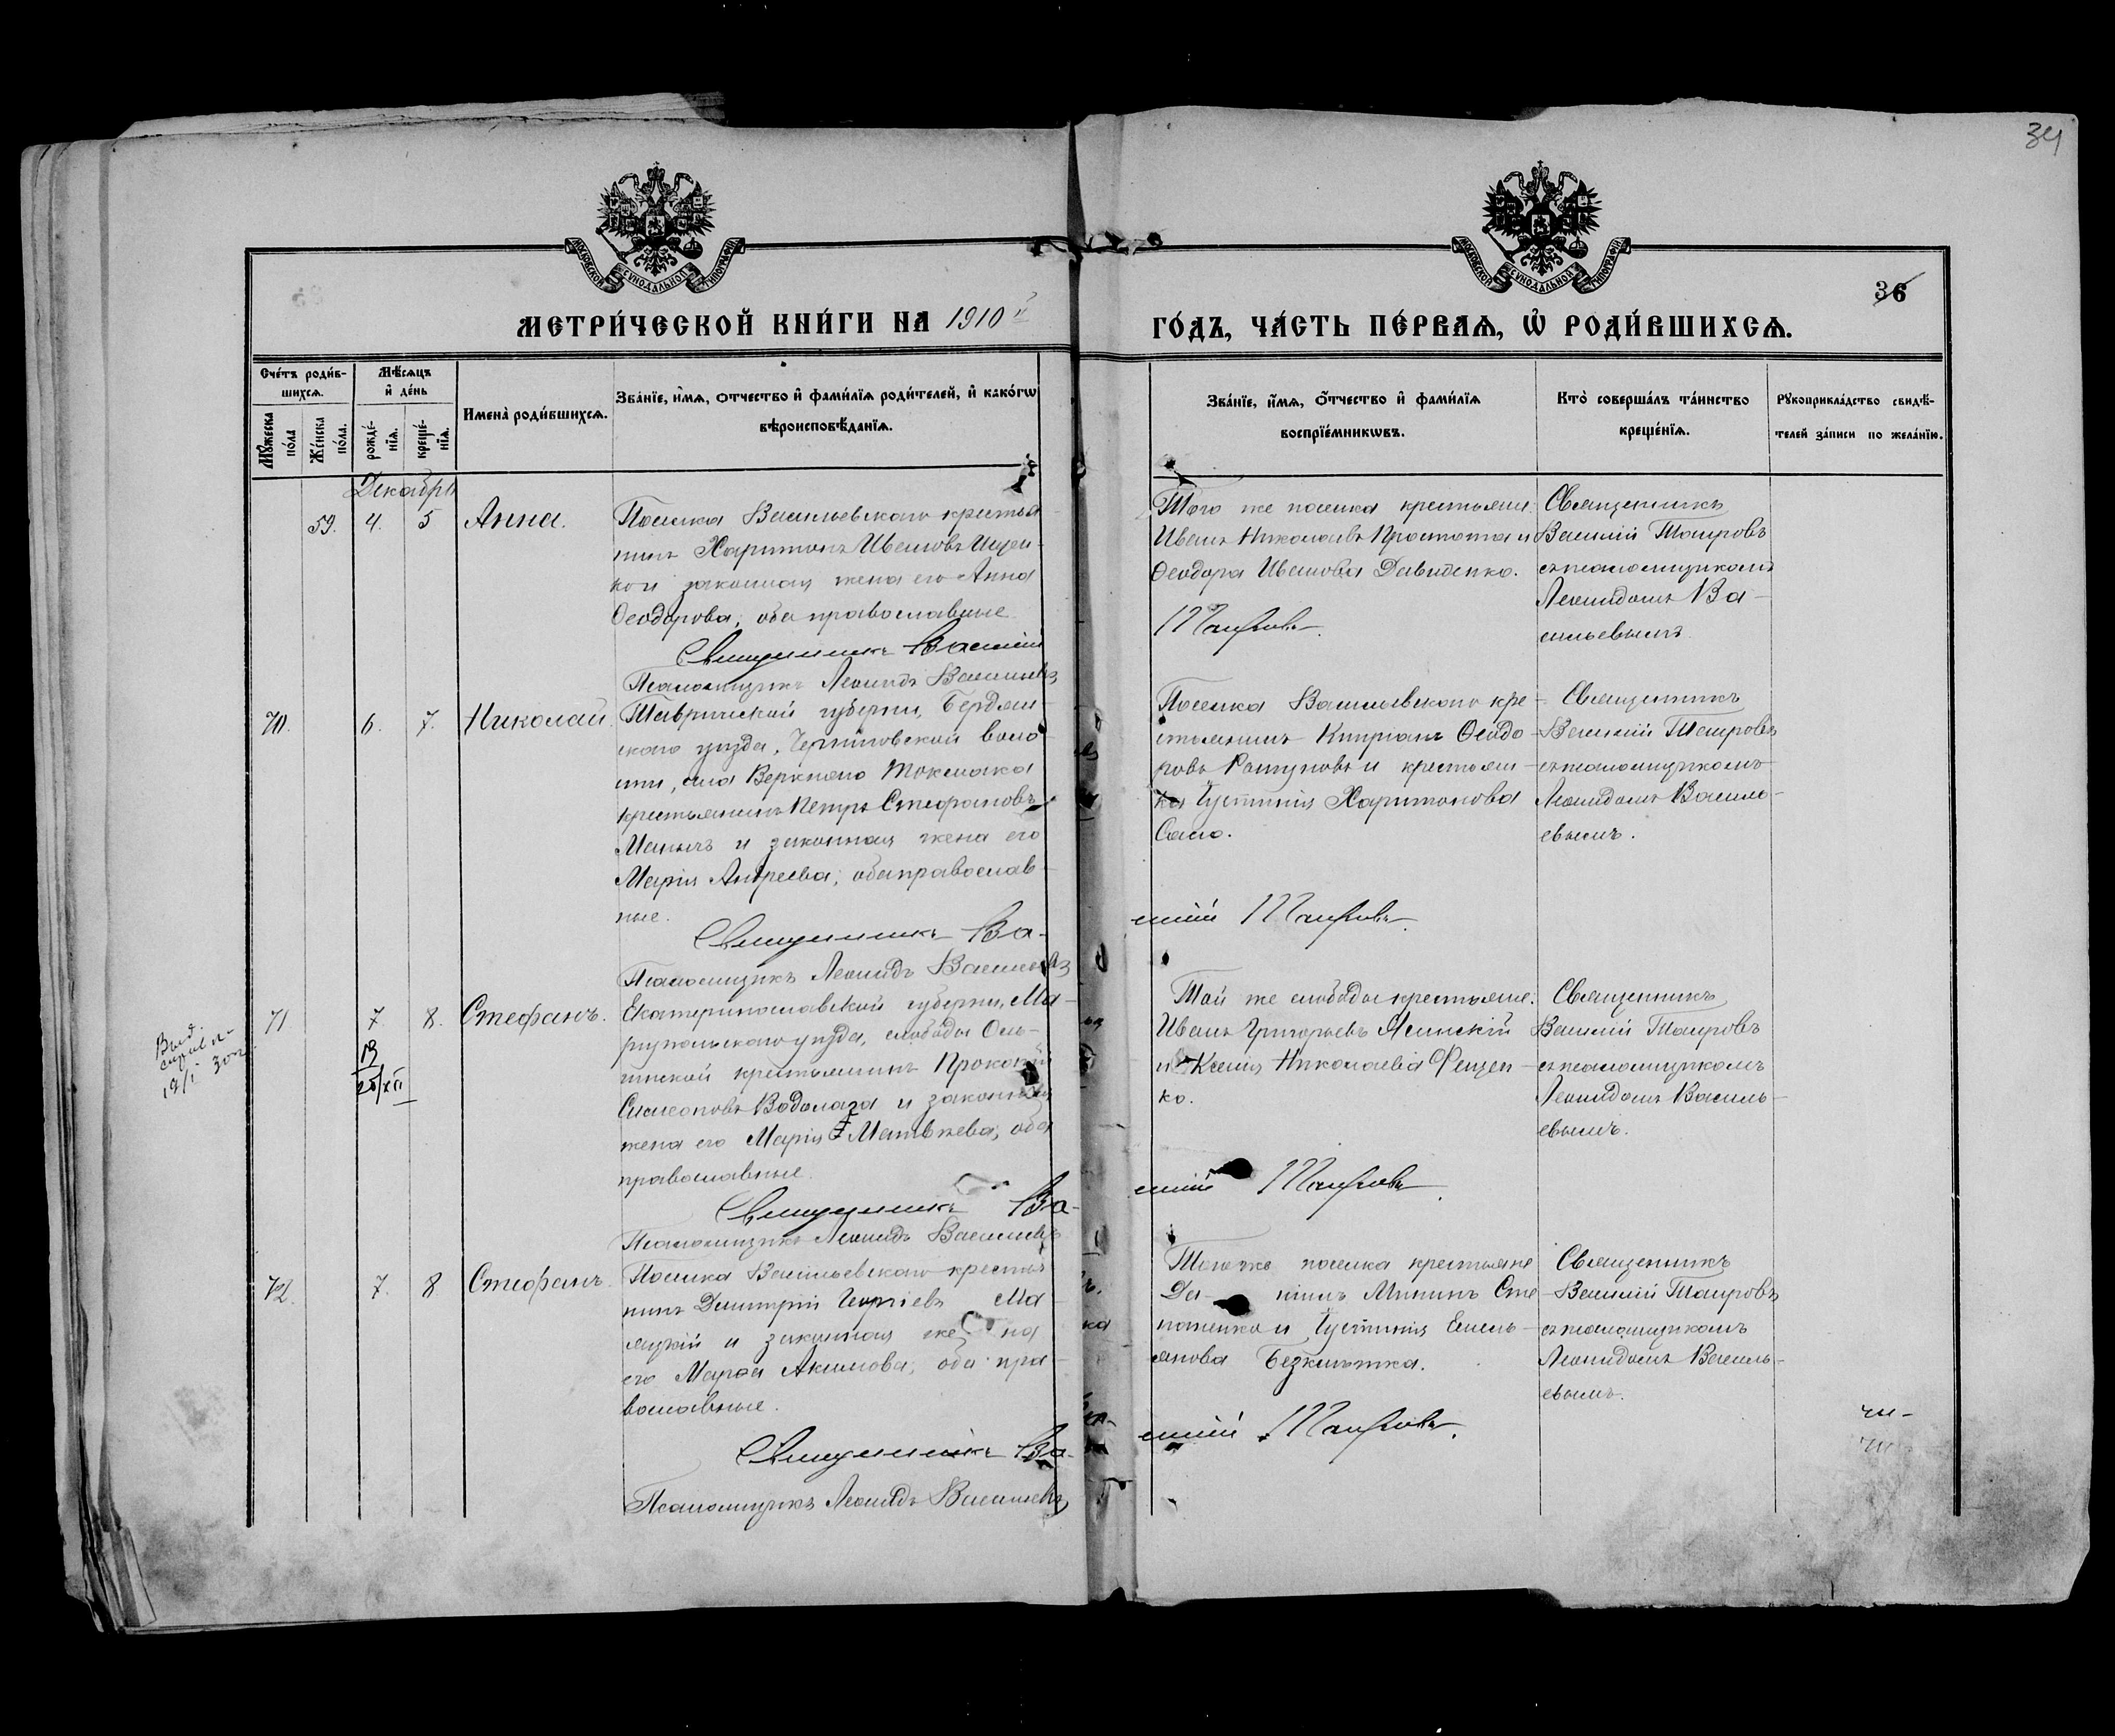 34
МОСКОВСКОЙ СѴНОДАЛЬНОЙ ТИПОГРАФІИ
МОСКОВСКОЙ СѴНОДАЛЬНОЙ ТИПОГРАФІИ
36
МЕТРИ́ЧЕСКОЙ КНИ́ГИ НА 1910й
ГО́ДЪ, ЧА́СТЬ ПЕ́РВАѦ, Ѡ҆ РОДИ́ВШИХСѦ.
Сче́тъ роди́в-
шихсѧ.
Мѣ́сѧцъ
и҆ де́нь
Мꙋ́жеска
по́ла
Же́нска
по́ла.
рожде́-
нїѧ.
креще́-
нїѧ.
Имена̀ роди́вшихсѧ.
Зва́нїе, и҆́мѧ, ѻ҆́тчество и҆ фами́лїѧ роди́телей, и҆ како́гѡ
вѣроисповѣ́данїѧ.
Зва́нїе, и҆́мѧ, ѻ҆́тчество и҆ фами́лїѧ
воспрїе́мникѡвъ.
Кто̀ соверша́лъ та́инство
креще́нїѧ.
Рꙋкоприкла́дство свидѣ́-
телей за́писи по жела́нїю.
Декабрь
59. 4. 5 Анна.
Поселка Васильевскаго крестья-
нинъ Харитонъ Ивановъ Ищен-
ко и законная жена его Анна
Ѳеодорова, оба православные.
Священникъ Василій
Псаломщикъ Леонидъ Васильевъ
Того же поселка крестьяни:
Иванъ Николаевъ Простота и
Ѳеодора Иванова Давиденко.
Таировъ.
Священникъ
Василій Таировъ
съ псаломщикомъ
Леонидомъ Ва-
сильевымъ.
70. 6. 7. Николай.
Таврической губерніи, Бердян-
скаго уѣзда, Черниговской воло-
сти, села Верхняго Токмака
крестьянинъ Петръ Стефановъ
и законная жена его
Марія Андреева; оба православ-
ные.
Священникъ Ва-
Псаломщикъ Леонидъ Васильевъ
Поселка Васильевскаго кре-
стьянинъ Кипріанъ Ѳеодо-
ровъ и крестьян-
ка Іустинія Харитонова
Сало.
силій Таировъ.
Священникъ
Василій Таировъ
съ псаломщикомъ
Леонидомъ Василь-
евымъ.
Выд.
19/I
71 7 8. Стефанъ.
19
25/XII
Екатеринославской губерніи, Ма-
ріупольскаго уѣзда, слободы Оль-
гинской крестьянинъ Прокопій
Симеоновъ Водолага и законная
жена его Марія Матвѣева; оба
православные.
Священникъ Ва-
Псаломщикъ Леонидъ Васильевъ
Той же слободы крестьяне:
Иванъ Григорьевъ Ясинскій
и Ксенія Николаева Фещен-
ко.
силій Таировъ.
Священникъ
Василій Таировъ
съ псаломщикомъ
Леонидомъ Василь-
евымъ.
72. 7. 8 Стефанъ.
Поселка Васильевскаго крестья-
нинъ Димитрій Георгіевъ Ма-
и законная жена
его Марѳа Акимова, оба пра-
вославные.
Священникъ Ва-
Псаломщикъ Леонидъ Васильевъ
Того же поселка крестьяне
Мининъ Сте-
паненко и Іустинія Емель-
янова
силій Таировъ.
Священникъ
Василій Таировъ
съ псаломщикомъ
Леонидомъ Василь-
евымъ.